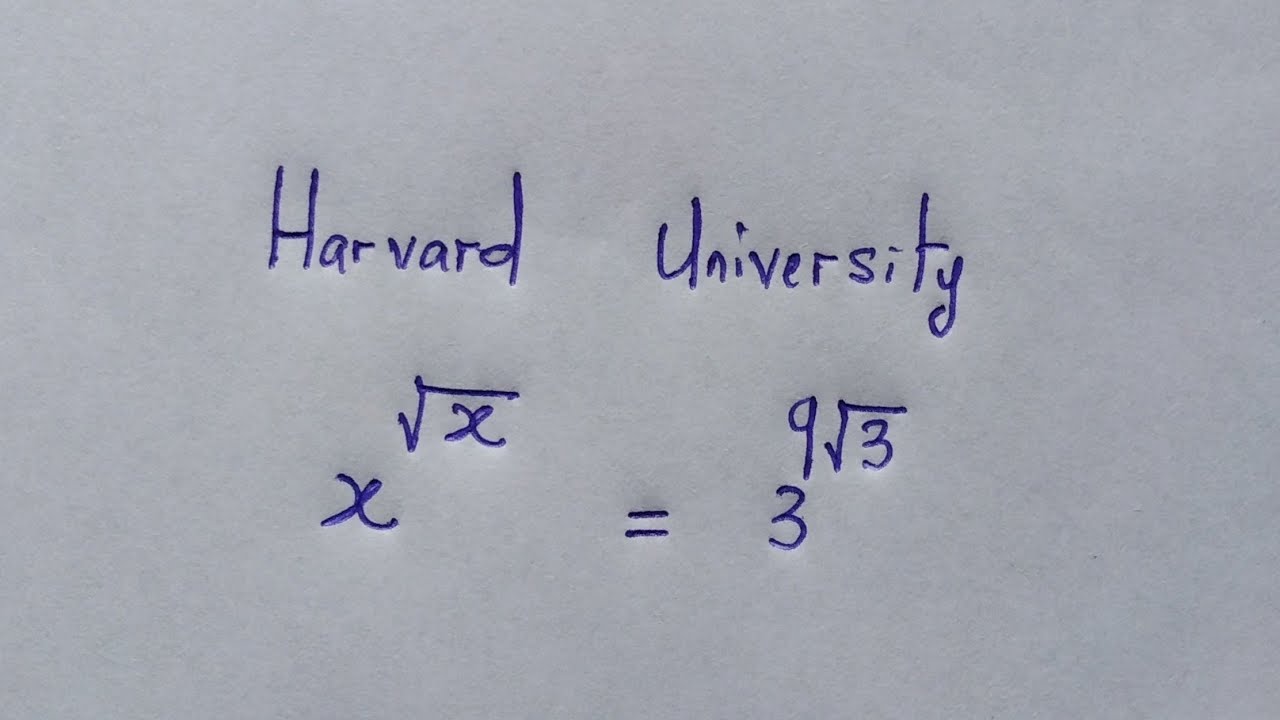 Harvard University
x^√x = 3^9√3